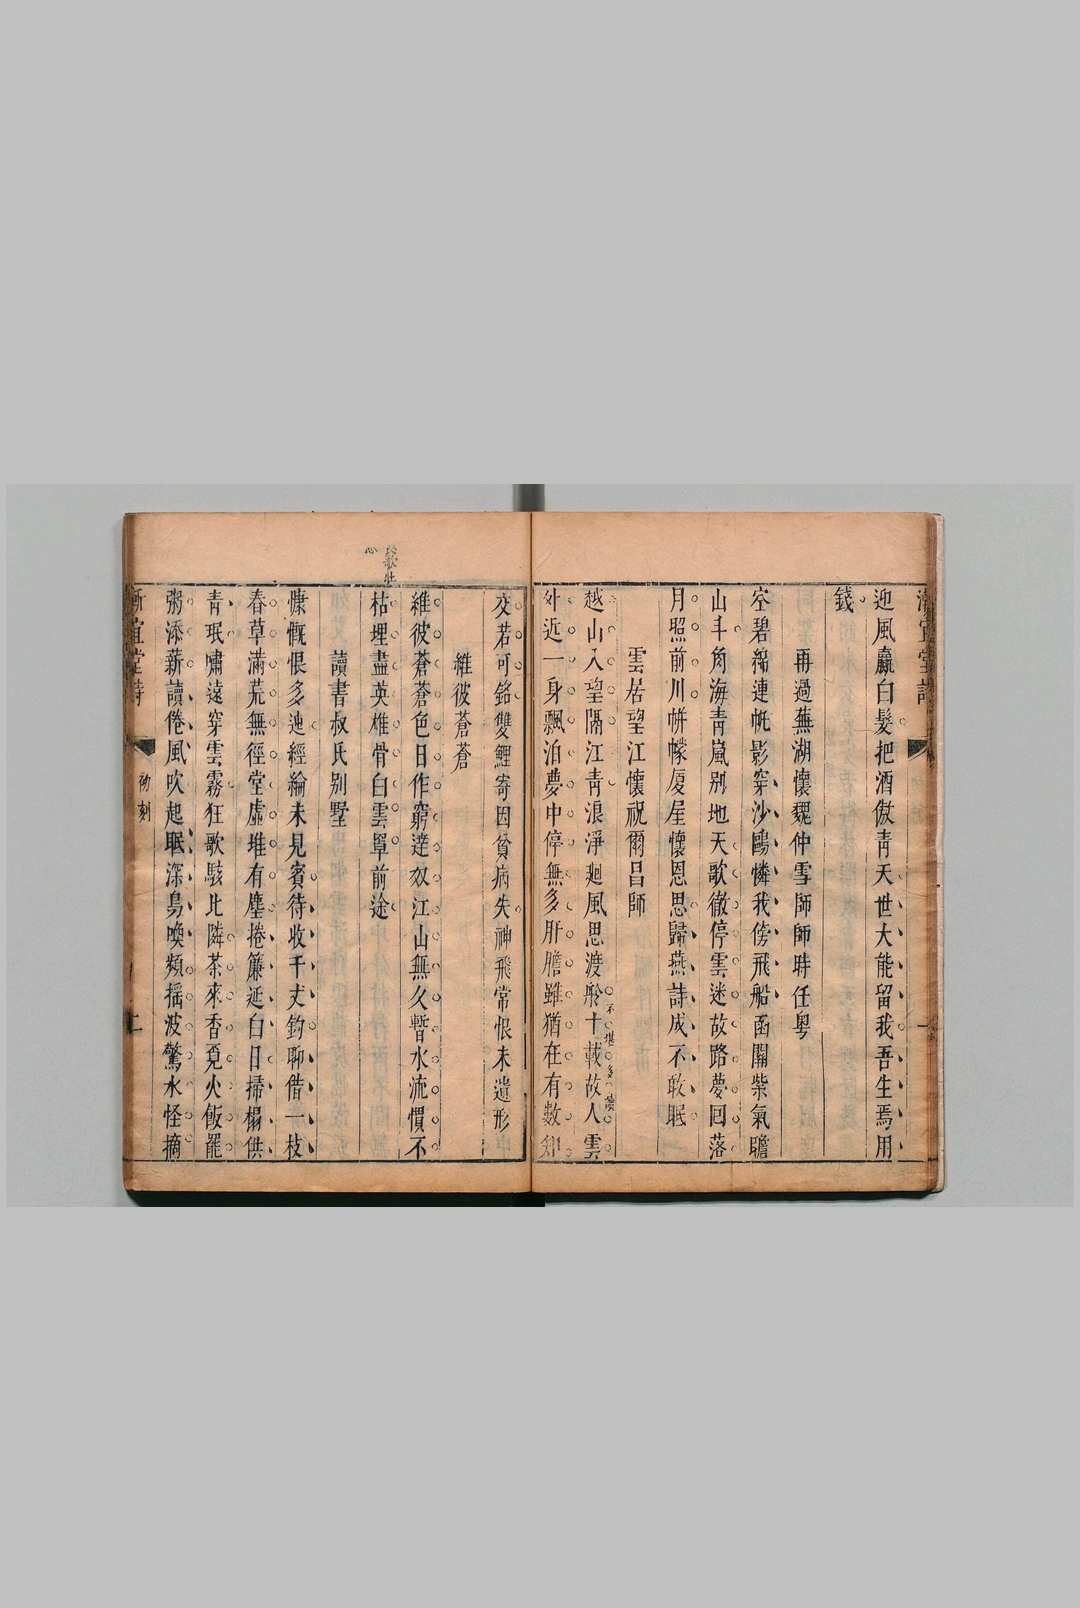 迎風贏白髮把酒傲青天世大能留我吾生焉用
錢
再過蕪湖懷魏仲雪師師時任粤
空碧縮連帆影穿沙鷗憐我傍飛船函關紫氣瞻
山斗角海青嵐别地天歌徹停雲迷故路夢回落
月照前川帡幪厦屋懷恩思歸燕詩成不敢眠
雲居望江懷祝爾昌師
越山入望隔江青浪淨廻風思渡舲十載故人雲
外近一身飄泊夢中停無多肝膽雖猶在有數
不堪多讀
交若可銘雙鯉寄因貧病失神飛常恨未遺形
維彼蒼蒼
維彼蒼蒼色日作窮達奴江山無久暫水流慣不
枯埋盡英雄骨白雲單前途
歌
讀書叔氏别墅
慷慨恨多迍經綸未見賓待收千丈鈎聊借一枝
春草滿荒無徑堂虛堆有塵捲簾延白日掃榻供
青珉嘯遠穿雲霧狂歌駭比隣茶來香覓火飯罷
粥添薪讀倦風吹起眠深鳥喚頻揺波驚水怪摘
漸宜堂詩
初刻
二